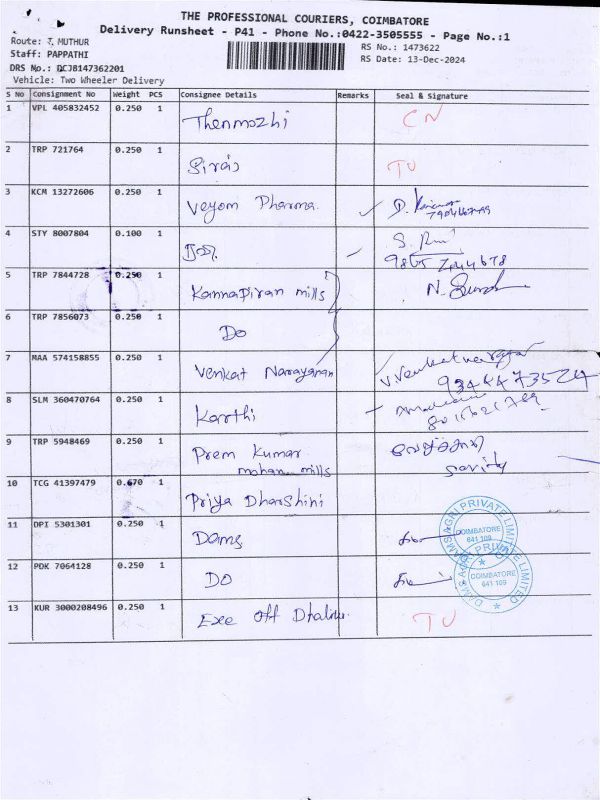 THE PROFESSIONAL COURIERS, COIMBATORE
Delivery Runsheet - P41 - Phone No.:0422-3505555 - Page No.:1
Route: T. MUTHUR
RS No.: 1473622
Staff: PAPPATHI
RS Date: 13-Dec-2024
DRS No.: DCJ8147362201
Vehicle: Two Wheeler Delivery
S No Consignment No Weight PCS Consignee Details Remarks Seal & Signature
1 VPL 405832452 0.250 1 Thenmozhi CN
2 TRP 721764 0.250 1 Siraj TU
3 KCM 13272606 0.250 1 Veyom Pharma
4 STY 8007804 0.100 1
5 TRP 7844728 0.250 1 Kannapiran mills
6 TRP 7856073 0.250 1 Do
7 MAA 574158855 0.250 1 Venkat Narayanan
8 SLM 360470764 0.250 1 Karthi
9 TRP 5948469 0.250 1 Prem Kumar
mohan mills
10 TCG 41397479 0.670 1 Priya Dharshini
11 DPI 5301301 0.250 1 Dams
DAMS AGRI PRIVATE LIMITED
COIMBATORE
641 109
12 PDK 7064128 0.250 1 DO
DAMS AGRI PRIVATE LIMITED
COIMBATORE
641 109
13 KUR 3000208496 0.250 1 Exe Off TU